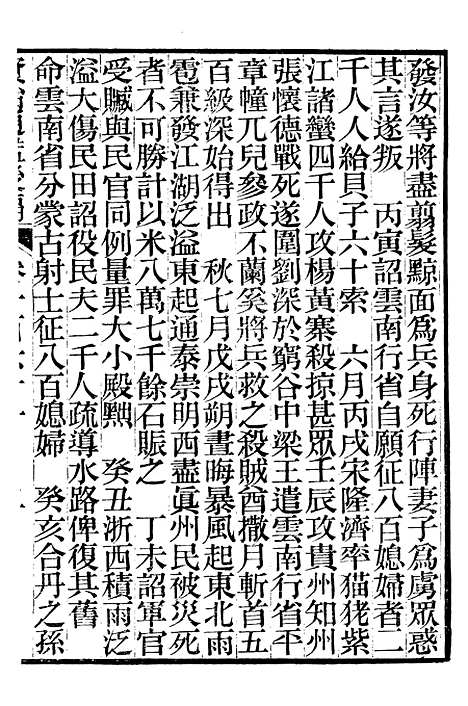 發汝等將盡翦髮黥面爲兵身死行陣妻子爲虜眾惑
其言遂叛　丙寅詔雲南行省自願征八百媳婦者二
千人人給貝子六十索　六月丙戌宋隆濟率猫狫紫
江諸蠻四千人攻楊黃寨殺掠甚眾壬辰攻貴州知州
張懷德戰死遂圍劉深於窮谷中梁王遣雲南行省平
章幢兀兒參政不蘭奚將兵救之殺賊酋撒月斬首五
百級深始得出　秋七月戊戌朔晝晦暴風起東北雨
雹兼發江湖泛溢東起通泰崇明西盡眞州民被災死
者不可勝計以米八萬七千餘石賑之　丁未詔軍官
受贓與民官同例量罪大小殿黜　癸丑浙西積雨泛
溢大傷民田詔役民夫二千人疏導水路俾復其舊
命雲南省分蒙古射士征八百媳婦　癸亥合丹之孫